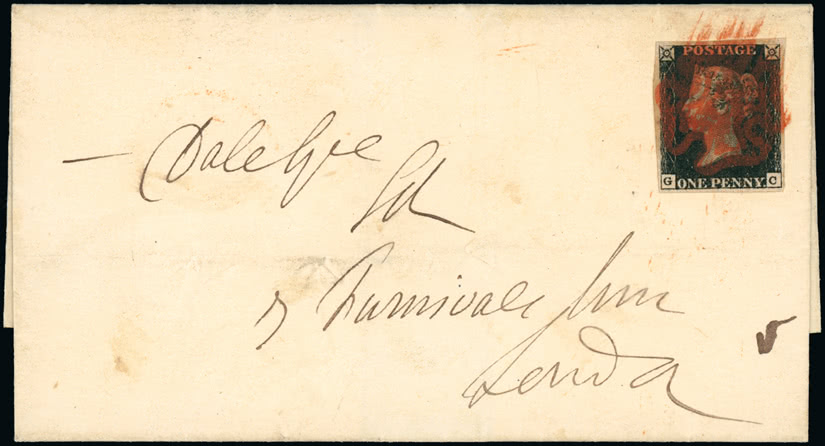 POSTAGE
G ONE PENNY. C
— Dale Gye
7 Furnivals Inn
London